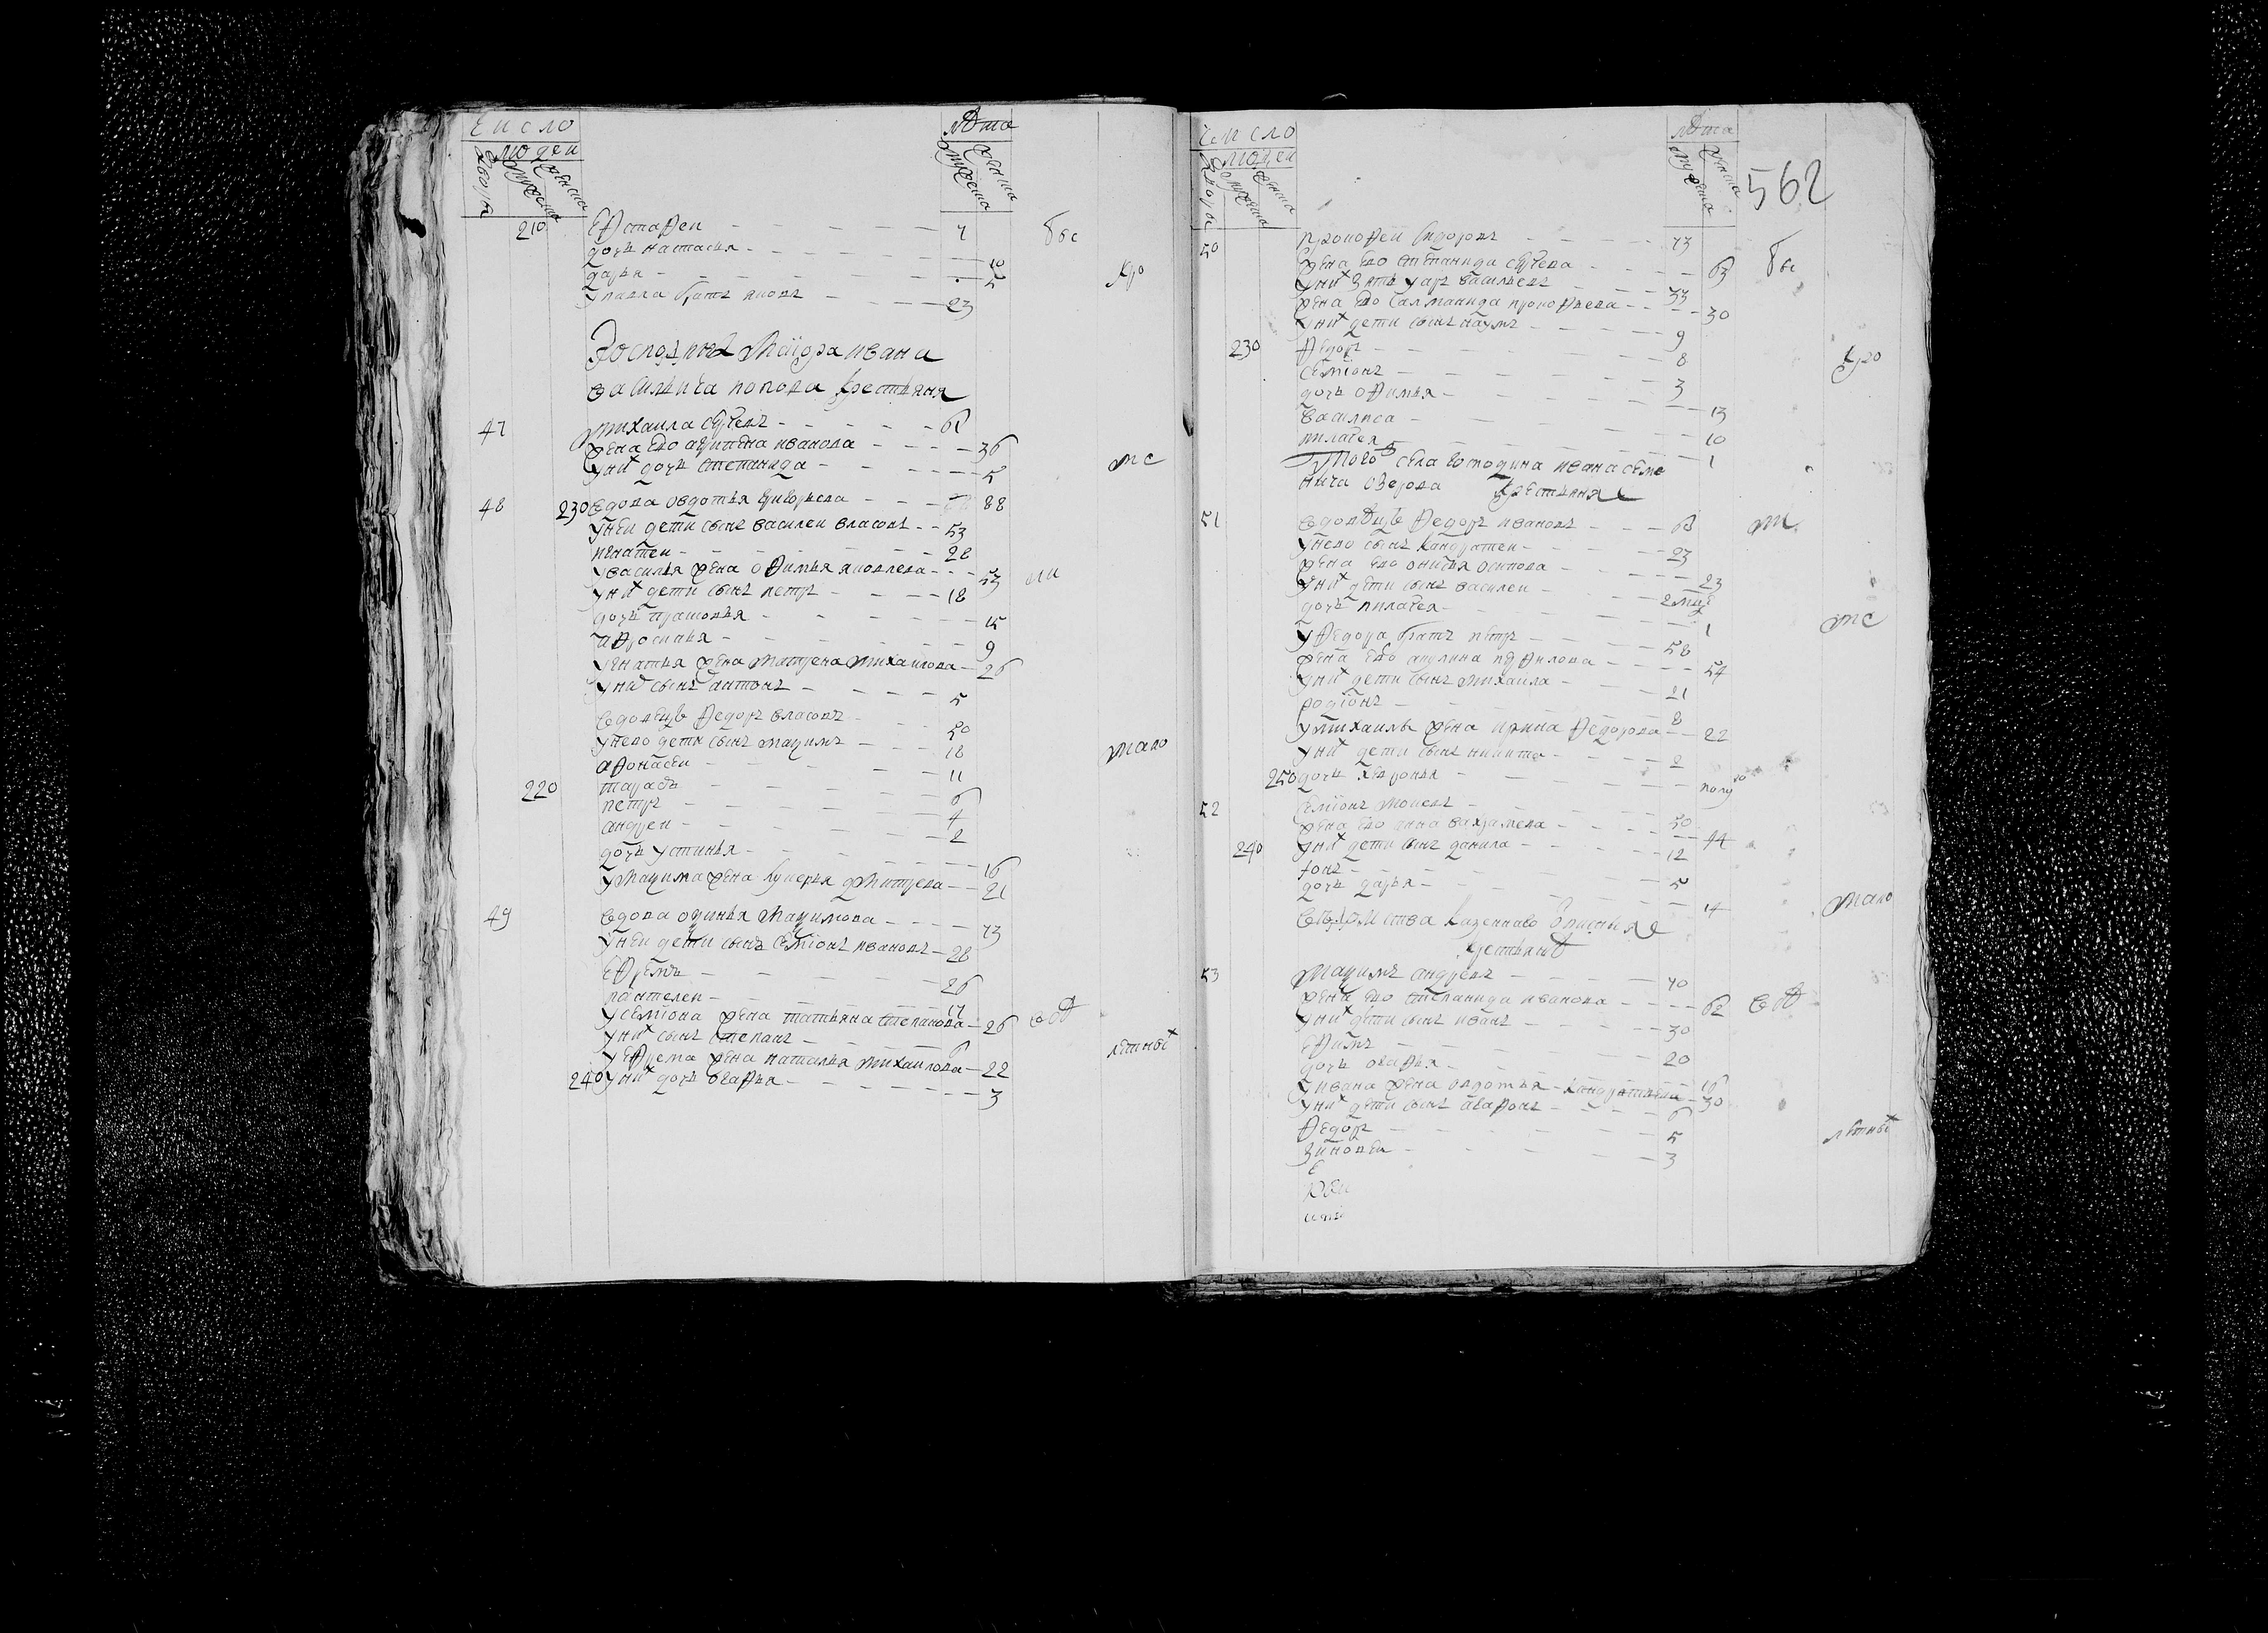 Число
людеи
двороѵ мужеска женска
лѣта
мужеска женска
210 Еѵстаѳеи 7 бы
дочь настасья 10
дарья 5 кро
у павла братъ яковъ 23
Господина маиора ивана
васильича попова крестьяня
47 михаила сергеевъ
жена ево агрипена иванова 36
у них дочь степанида 5 ж с
48 230 вдова овдотья григорьева 88
у неи дети сынъ василеи власовъ 53
игнатеи 28
у василья жена оѳимья яковлева 53
у них дети сынъ петръ 18
дочь прасковья 15
аѳросинья 9
у игнатья жена матрена михаилова 26
у них сынъ антонъ 5
вдовецъ ѳедоръ власовъ 50
у нево дети сынъ мақимъ 18 мало
аѳонасеи 11
220 тарасъ 6
петръ 4
андреи 2
дочь устинья 16
у мақима жена лукерья дмитрева 21
49 вдова оқинья мақимова 73
у неи дети сынъ семионъ ивановъ 28
еѳремъ 26
пантелеи 17
у семиона жена татьяна степанова 26
у них сынъ степанъ 6
у еѳрема жена наталья михаилова 22 летных
240 у них дочь огаѳья 3
Число
людеи
лѣта
мужеска женска
562
50 прокоѳеи сидоровъ 73
жена ево степанида сергеева 63 бы
у них зять уаръ васильевъ 33
жена ево саламанида прокоѳьева 30
у них дети сынъ наумъ 9
230 ѳедоръ 8 кро
семионъ 3
дочь оѳимья 13
василиса 10
пилагея 1
того ж села господина ивана семе
нича озерова крестьяня
51 вдовецъ ѳедоръ ивановъ
у нево сынъ кандратеи 23
жена ево онисья осипова 23
у них дети сынъ василеи
дочь пилагея 1 ж с
у ѳедора братъ петръ 58
жена ево акулина панѳилова 54
у них дети сынъ михаила 21
родионъ 8
у михаилы жена ирина ѳедорова 22
у них дети сынъ никита 2
250 дочь хеѵронья полу го
52 семионъ моисеевъ 50
жена ево анна вахрамеева 44
240 у них дети сынъ данила 12
ѳока 5
дочь дарья 14 мало
ведомства казеннаго описныя
крестьяня
53 мақимъ андреевъ 70
жена ево степанида иванова 62
у них дети сынъ иванъ 30
еѳимъ 20
дочь огаѳья 16
у ивана жена овдотья кандратьева 30
у них дети сынъ агаѳонъ 6
ѳедоръ 5 летных
зиновеи 3